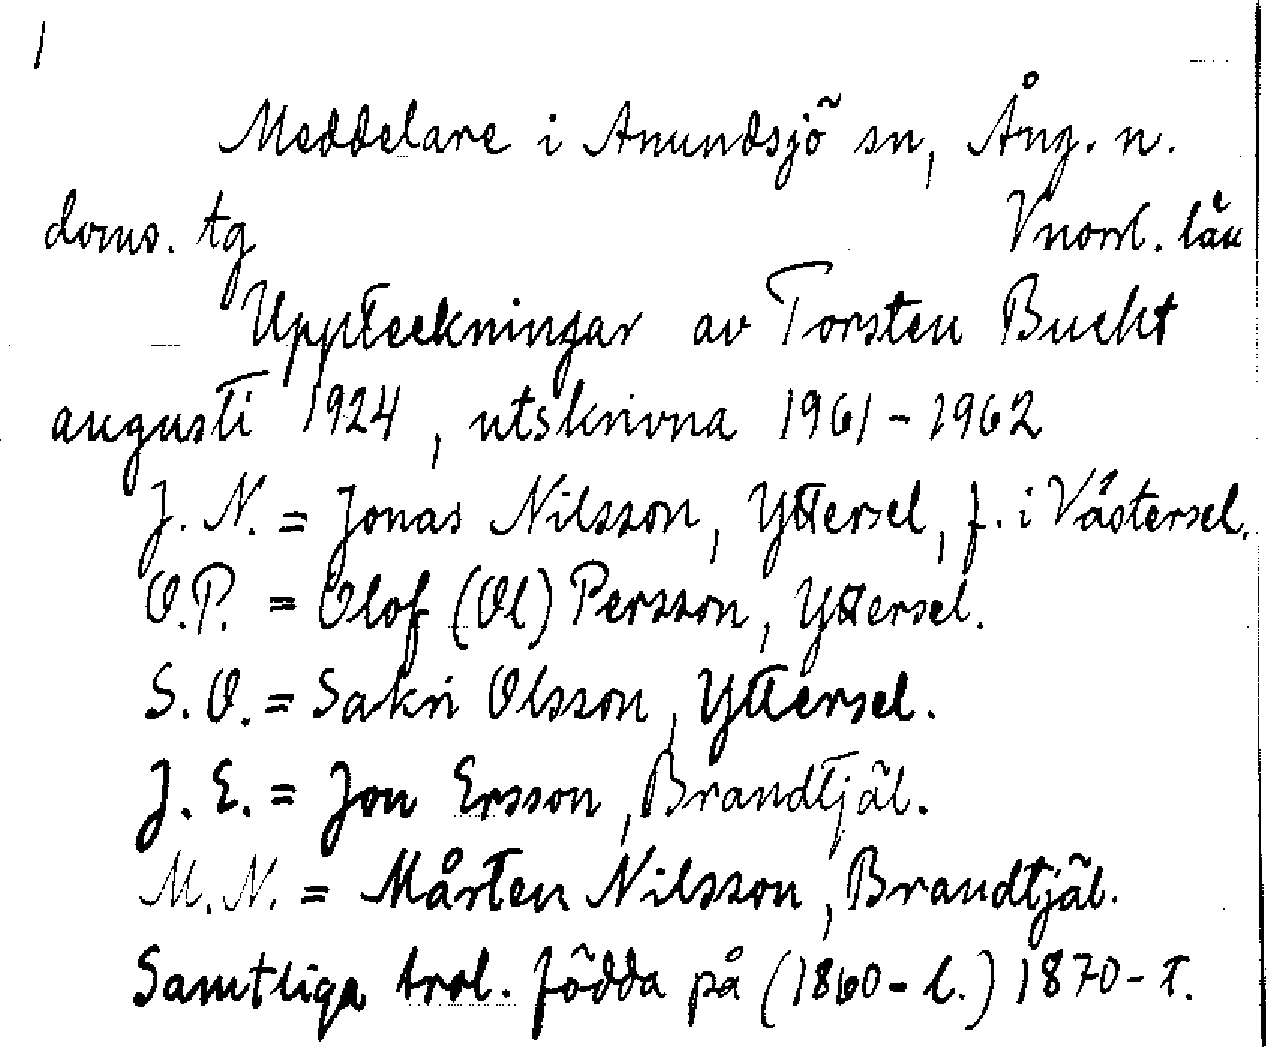 1
Meddelare i Anundsjö sn, Ång. n.
doms. tg Vnorrl. län
Uppteckningar av Torsten Bucht
augusti 1924, utskrivna 1961-1962
J. N. = Jonas Nilsson, Yttersel, f. i Västersel.
O.P. = Olof (Ol) Persson, Yttersel.
S. O. = Sakri Olsson, Yttersel.
J. E. = Jon Ersson, Brandtjäl.
M. N. = Mårten Nilsson, Brandtjäl.
Samtliga trol. födda på (1860-t.) 1870-t.